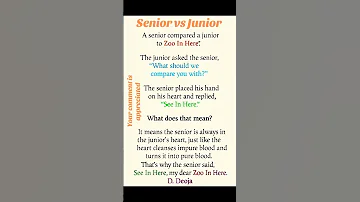 Senior vs Junior
A senior compared a junior
to Zoo In Here!
The junior asked the senior,
"What should we
compare you with?"
The senior placed his hand
on his heart and replied,
"See In Here."
What does that mean?
It means the senior is always in
the junior's heart, just like the
heart cleanses impure blood and
turns it into pure blood.
That's why the senior said,
See In Here, my dear Zoo In Here.
D. Deoja
Your comment is
appreciated